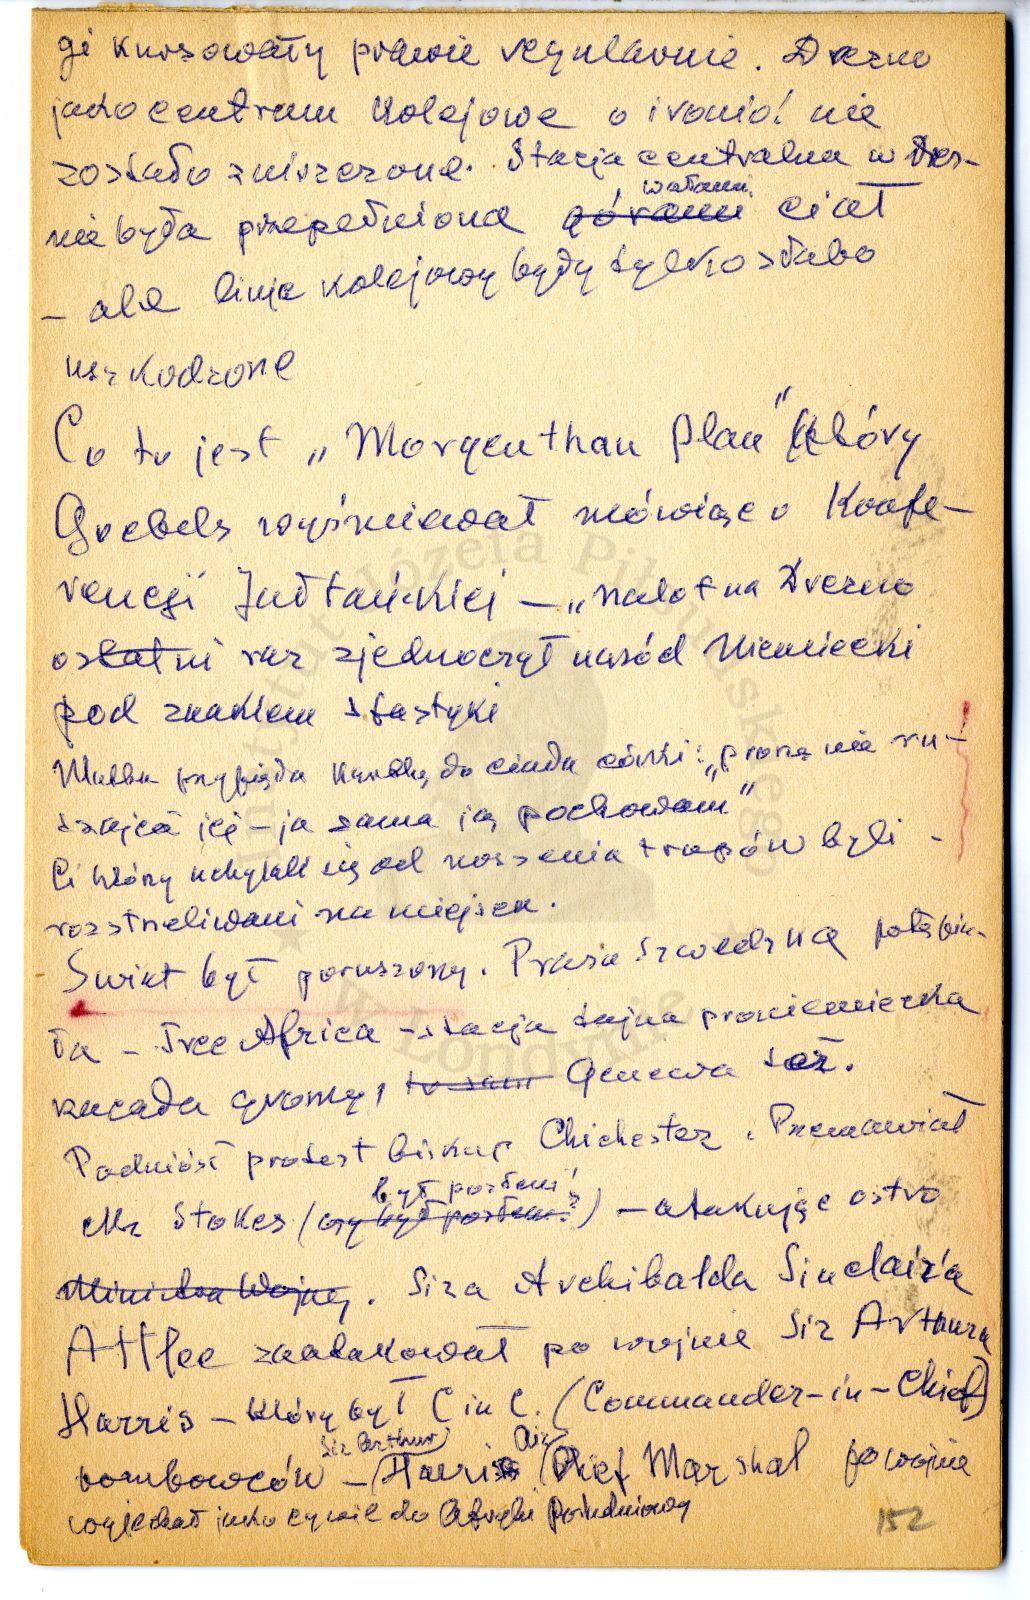 gi kursowały prawie regularnie. Drezno
jako centrum kolejowe o ironio! nie
zostało zniszczone. Stacja centralna w Drez-
nie była przepełniona górami wałami ciał
– ale linje kolejowy były tylko słabo
uszkodzone
Co to jest „Morgenthau Plan" który
Goebels wyśmiewał mówiąc o Konfe-
rencji Jałtańskiej – „nalot na Drezno
ostatni raz zjednoczył naród Niemiecki
pod znakiem sfastyki
Matka przypięła kartkę do ciała córki: „proszę nie ru-
szajcie jej – ja sama ją pochowam"
Ci którzy uchylali się od noszenia trupów byli –
rozstrzeliwani na miejscu.
Świat był poruszony. Prasa Szwedzka potępia-
ła – Free Africa – stacja tajna proniemiecka
rzucała gromy, to sam Genewa też.
Podniósł protest biskup Chichester. Przemawiał
Mr Stokes (czy był posłem?) był posłem! – atakując ostro
Ministra Wojny. Sira Archibalda Sinclair'a
Attlee zaatakował po wojnie Sir Arthura
Harris – który był C in C. (Commander-in-Chief)
bombowców – (Sir Arthur) Harris (Air Chief Marshal po wojnie
wyjechał jako cywil do Afryki Południowy
152
Instytut Józefa Piłsudskiego
w Londynie